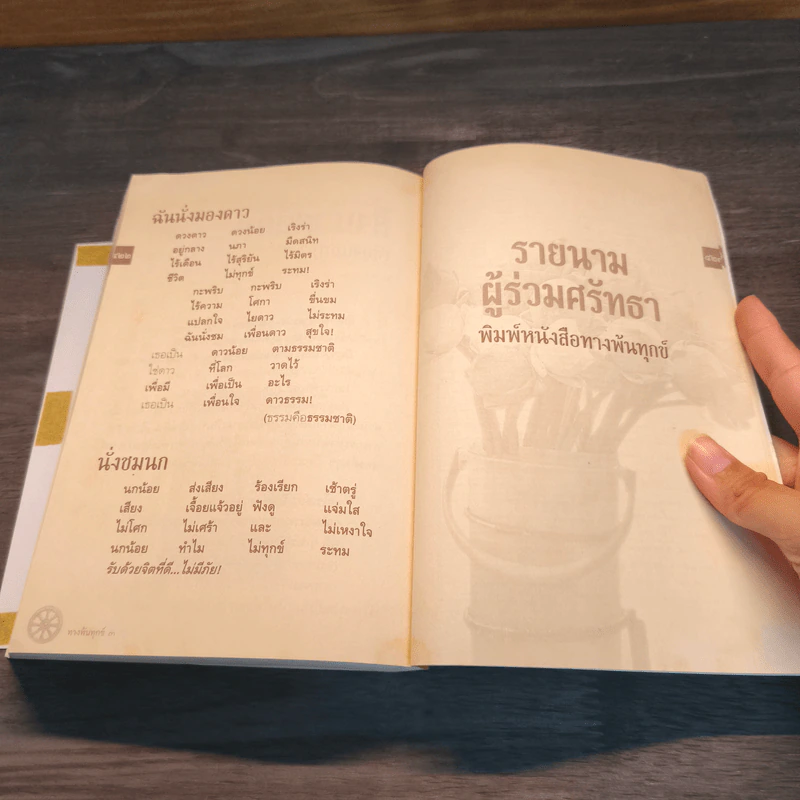 ฉันนั่งมองดาว
ดวงดาว ดวงน้อย เริงร่า
อยู่กลาง นภา มืดสนิท
ไร้เดือน ไร้สุริยัน ไร้มิตร
ชีวิต ไม่ทุกข์ ระทม!
กะพริบ กะพริบ เริงร่า
ไร้ความ โศกา ขื่นขม
แปลกใจ ไยดาว ไม่ระทม
ฉันนั่งชม เพื่อนดาว สุขใจ!
เธอเป็น ดาวน้อย ตามธรรมชาติ
ใช่ดาว ที่โลก วาดไว้
เพื่อมี เพื่อเป็น อะไร
เธอเป็น เพื่อนใจ ดาวธรรม!
(ธรรมคือธรรมชาติ)
นั่งชมนก
นกน้อย ส่งเสียง ร้องเรียก เช้าตรู่
เสียง เจื้อยแจ้วอยู่ ฟังดู แจ่มใส
ไม่โศก ไม่เศร้า และ ไม่เหงาใจ
นกน้อย ทำไม ไม่ทุกข์ ระทม
รับด้วยจิตที่ดี...ไม่มีภัย!
รายนาม
ผู้ร่วมศรัทธา
พิมพ์หนังสือทางพ้นทุกข์